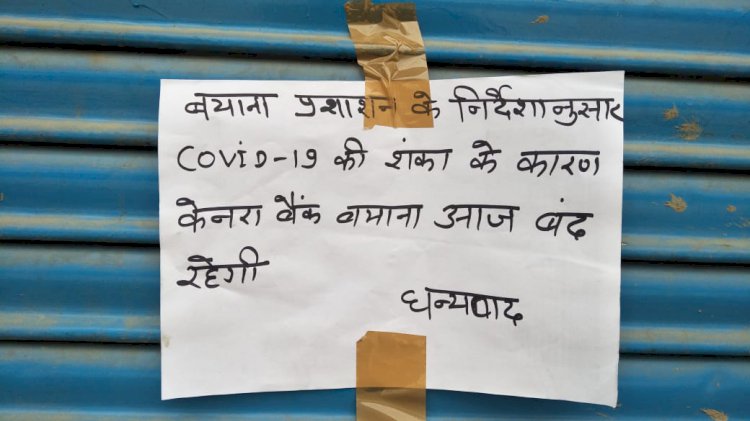 बयाना प्रशाशन के निर्देशानुसार
COVID-19 की शंका के कारण
केनरा बैंक बयाना आज बंद
रहेगी
धन्यवाद